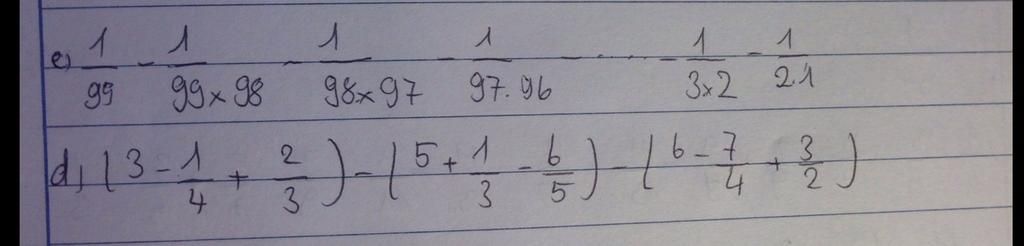 e) 1/99 - 1/99×98 - 1/98×97 - 1/97.96 - ... - 1/3×2 - 1/2.1
d, (3 - 1/4 + 2/3) - (5 + 1/3 - 6/5) - (6 - 7/4 + 3/2)